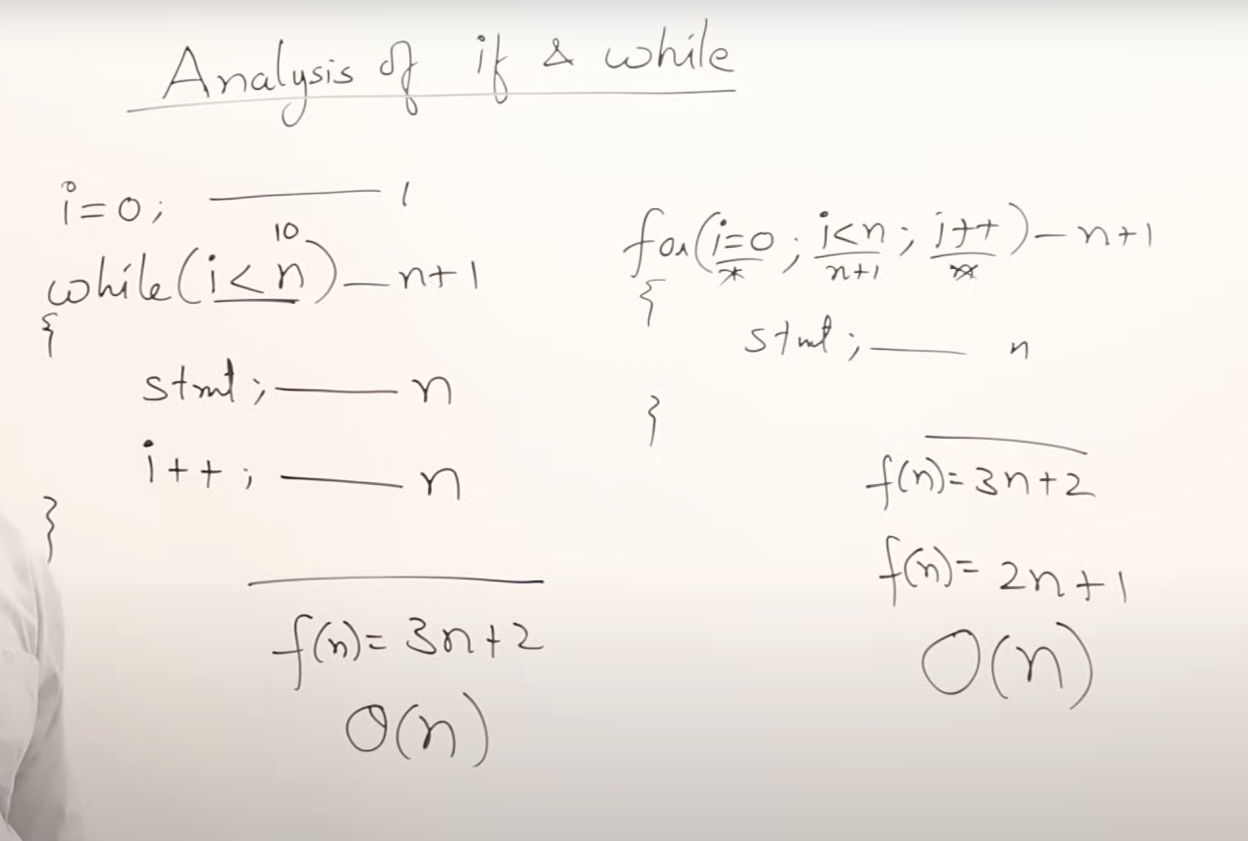 Analysis of if & while
i=0; —— 1
10
while(i<n) — n+1
{
stmt; —— n
i++; —— n
}
f(n)=3n+2
O(n)
for(i=0; i<n; i++) — n+1
n+1
{
stmt; —— n
}
f(n)=3n+2
f(n)=2n+1
O(n)